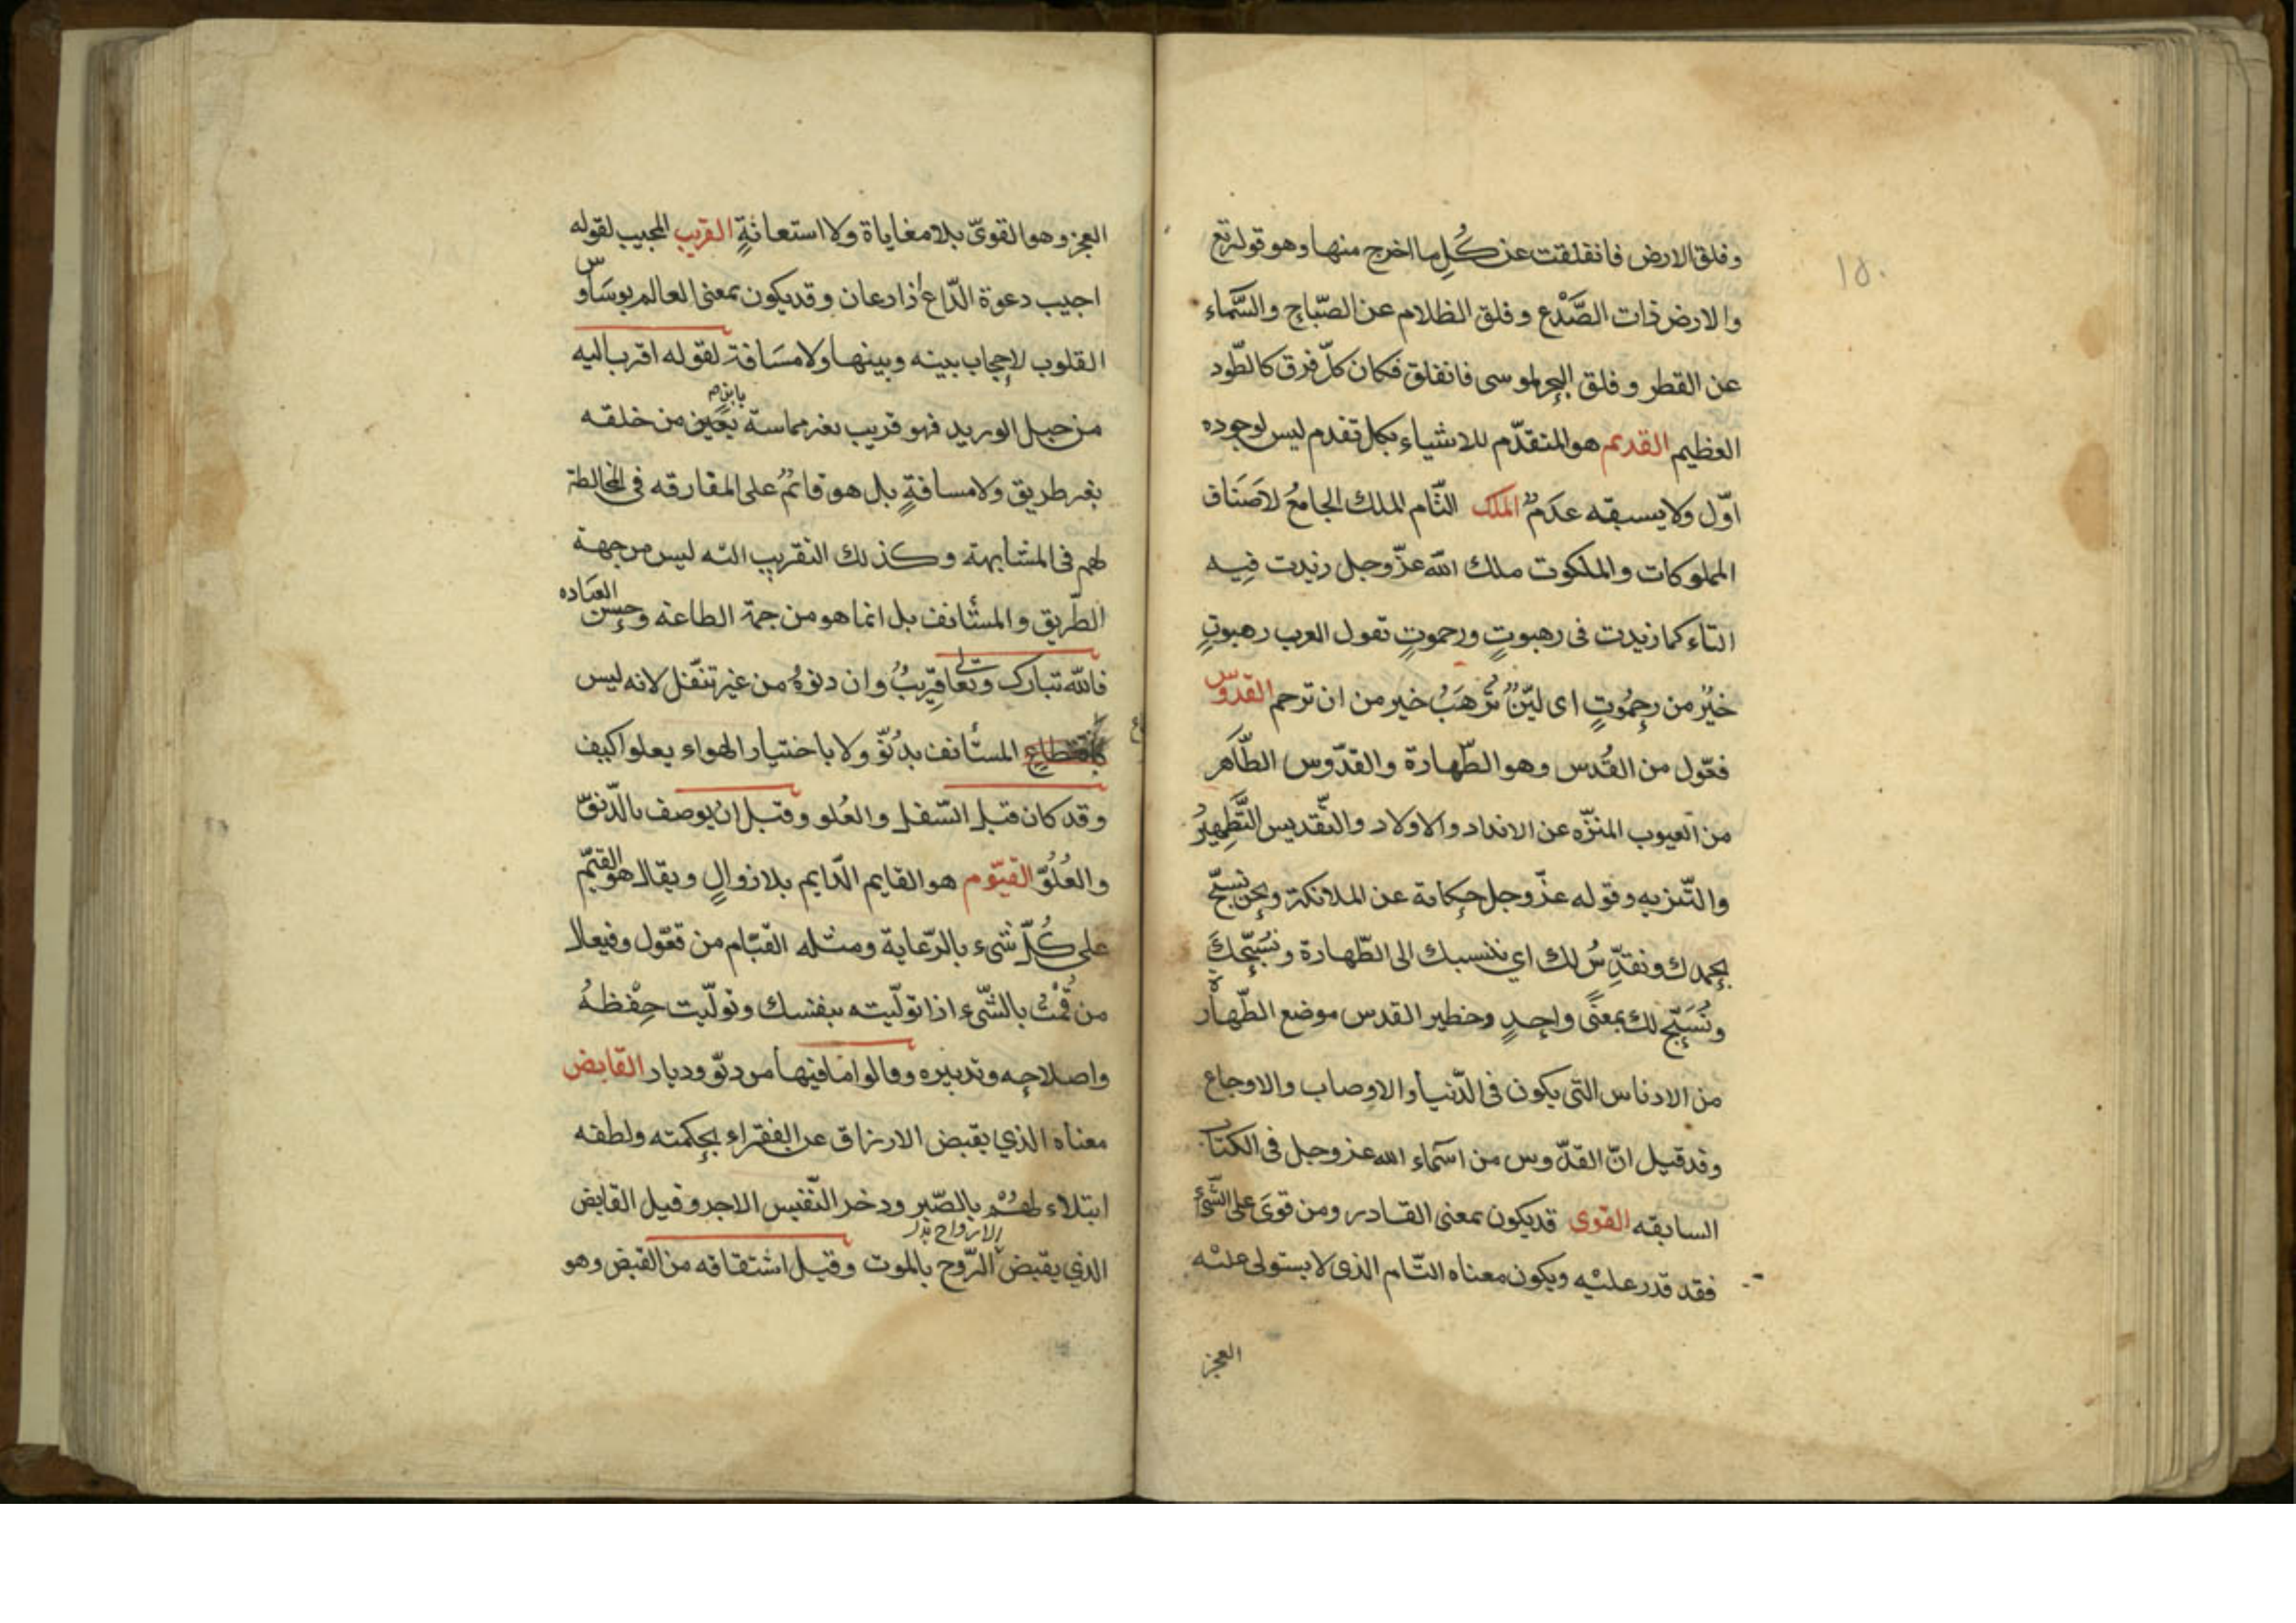 ١٥٠
وفلق الارض فانفلقت عن كُلِ ما اخرج منها وهو قوله تع
والارض ذات الصَّدْع وفلق الظلام عن الصّباح والسَّماء
عن القطر وفلق البحر لموسى فانفلق فكان كلّ فرق كالطّود
العظيم القديم هو المتقدّم للاشياء بكل تقدم ليس لوجوده
اوّل ولا يسبقه عدَمٌ الملك التّام الملك الجامعُ لاصَناف
المملوكات والملكوت ملك الله عزّ وجل زيدت فيه
التاء كما زيدت فى رهبوتٍ ورحموتٍ تقول العرب رهبوتٍ
خيُر من رحمُوتٍ اى ليّن تُرهَبُ خير من ان ترحم القدّوس
فعّول من القُدس وهو الطّهارة والقدّوس الطّاهر
من العيوب المنزّه عن الانداد والاولاد والتّقديس التَّطهِيرُ
والتّنزيه وقوله عزّ وجل حكاية عن الملائكة ونحن نسبّح
بحمدك ونقدِّسُ لك اي ننسبك الى الطّهارة ونُسَبّحكَ
ونُسَبّح لك بمعنًى واحدٍ وحظير القدس موضع الطّهارة
من الادناس التى يكون فى الدّنيا والاوصاب والاوجاع
وقد قيل انّ القدّوس من اسَماء الله عز وجل فى الكتاب
السابقه القوى قد يكون بمعنى القادر ومن قوىَ على الشّىء
فقد قدر عليْه ويكون معناه التّام الذى لا يستولى عليْه
العجز
العجز وهو القوىّ بلا مغاياة ولا استعانةٍ القريب المجيب لقوله
اجيب دعوة الدّاع اذا دعان وقد يكون بمعنى العالم بوسَاوس
القلوب لا حجاب بينه وبينها ولا مسَافة لقوله اقرب اليه
من حبل الوريد فهو قريب بغير مماسة من خلقه
بغير طريق ولا مسافةٍ بل هو قائمٌ على المفارقه فى المخالطة
لهم فى المشابهة وكذلك التقريب اليه ليس من جهة
الطّريق والمسأنف بل انما هو من جهة الطاعة وحسن العبَاده
فالله تبارك وتعالى قرِيبٌ وان دنوهُ من غير تنقّل لانه ليس
المسأنف بدنوّ ولا باختيار الهواء يعلوا كيف
وقد كان قبل السّفل والعُلو وقبل ان يوصف بالدّنوّ
والعُلُوّ القيّوم هو القايم الدّايم بلا زوالٍ ويقال هو القيّم
على كُلّ شىء بالرّعاية ومثله القيّام من فعّول وفيعال
من قُمْتُ بالشّىء اذا تولّيته بنفسك وتولّيت حِفْظهُ
واصلاحه وتدبيره وقالوا ما فيها من ديّور وديار القابض
معناه الذي يقبض الارزاق عن الفقراء بحكمته ولطفه
ابتلاء لهُمْ بالصّبر وذخر النّفيس الاجر وقيل القابض
الارواح بدل
الذي يقبض الرّوح بالموت وقيل اشتقاقه من القبض وهو